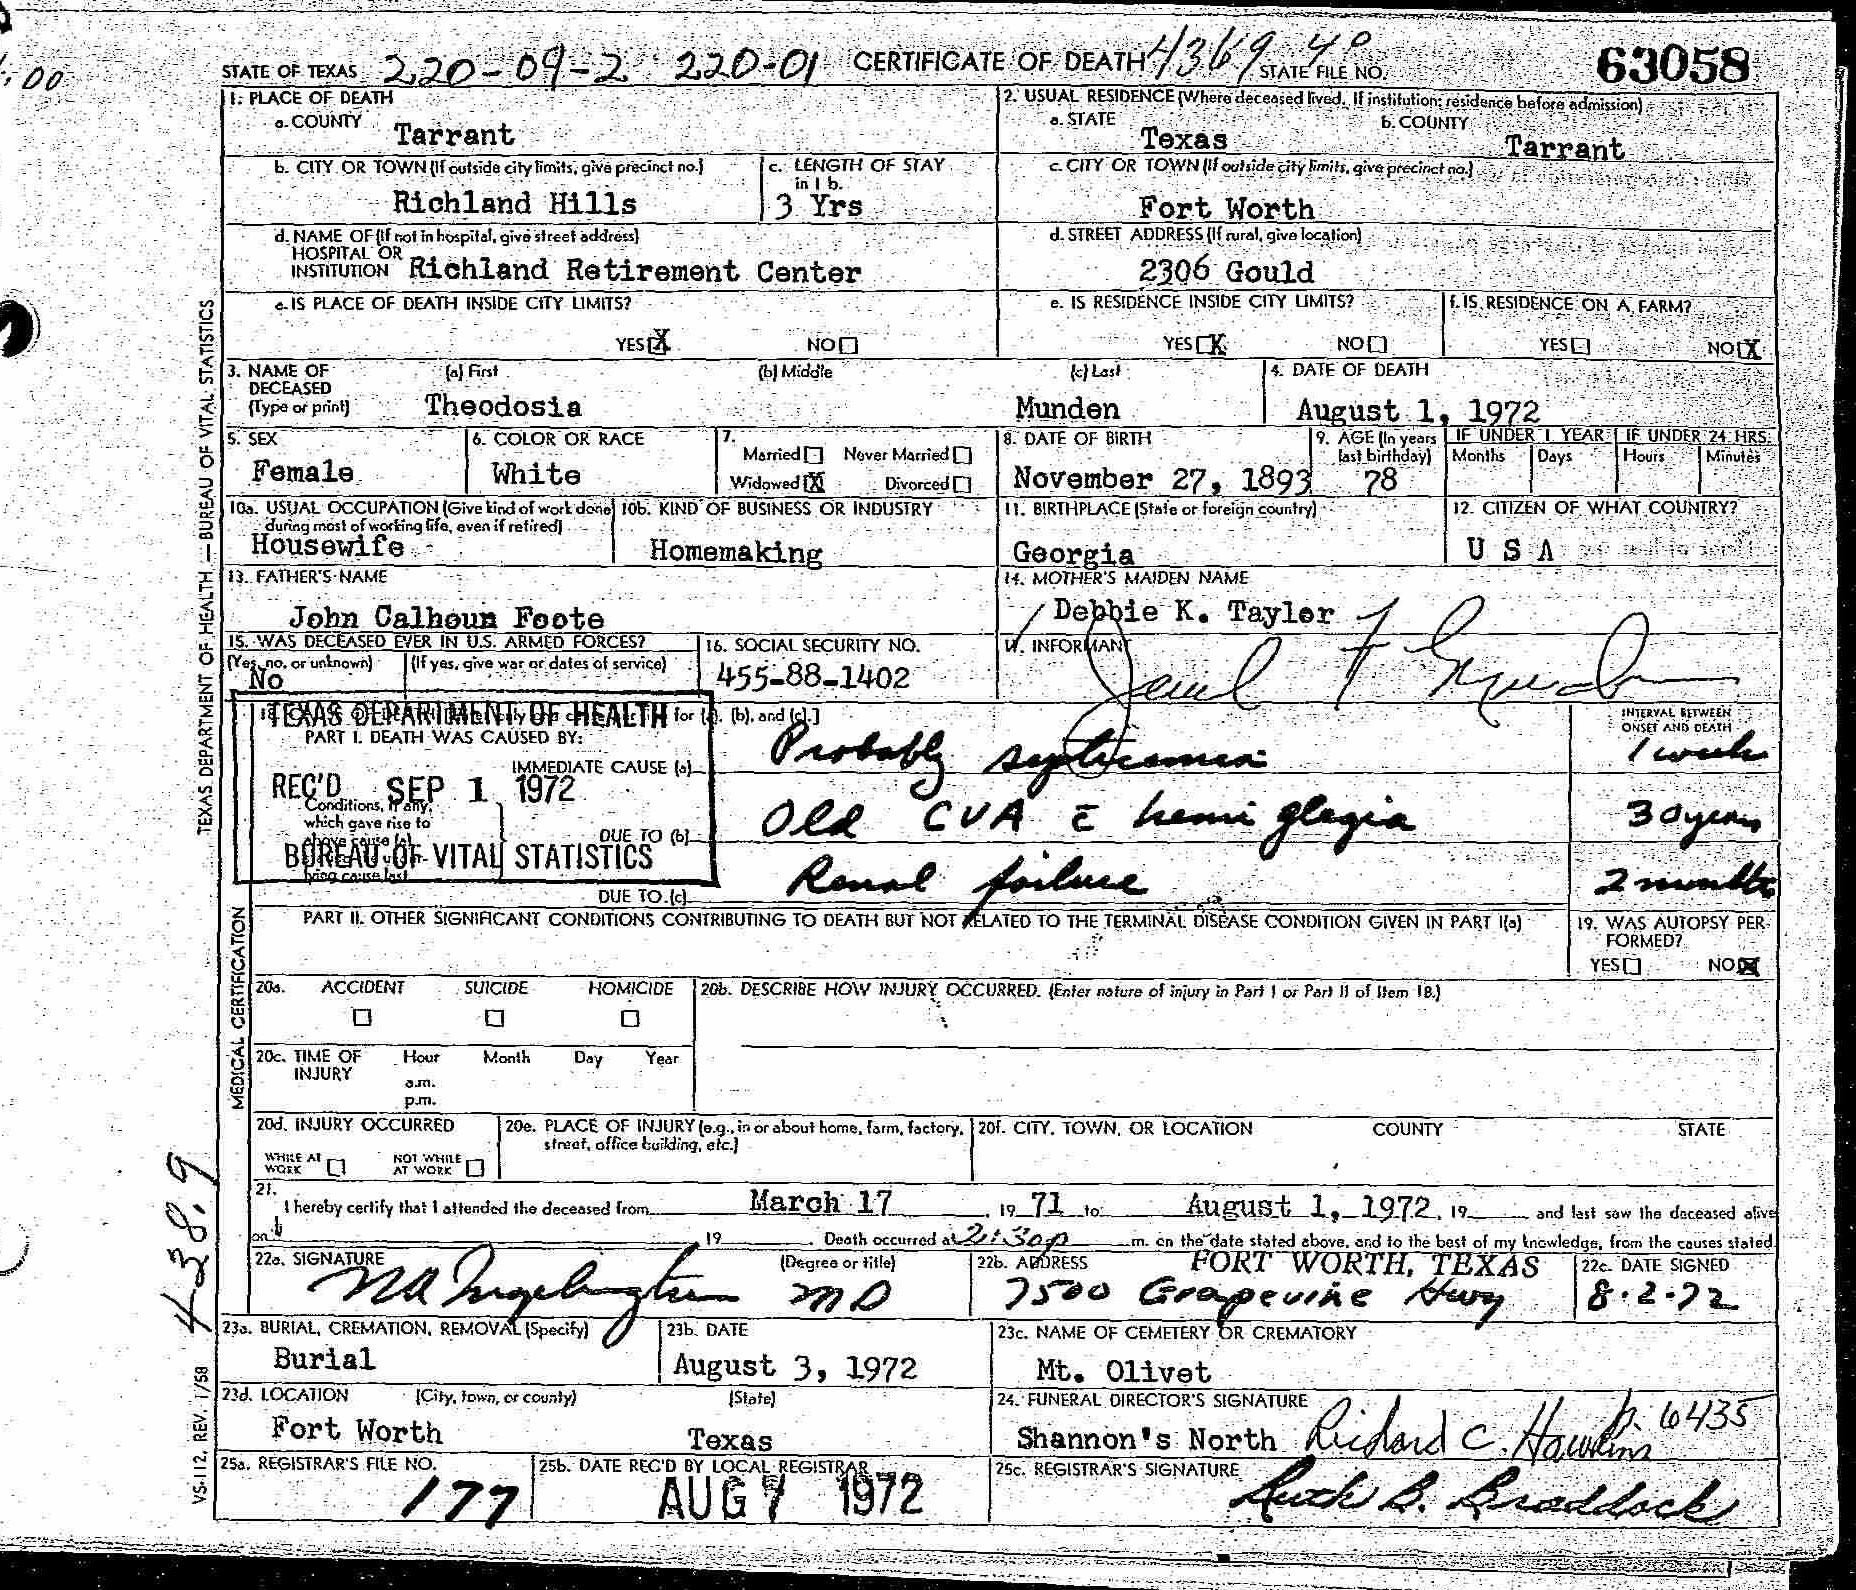 STATE OF TEXAS 220-09-2 220-01 CERTIFICATE OF DEATH 4369 40 STATE FILE NO. 63058
1. PLACE OF DEATH
a. COUNTY Tarrant
2. USUAL RESIDENCE (Where deceased lived. If institution: residence before admission)
a. STATE Texas b. COUNTY Tarrant
b. CITY OR TOWN (If outside city limits, give precinct no.) Richland Hills
c. LENGTH OF STAY in 1 b. 3 Yrs
c. CITY OR TOWN (If outside city limits, give precinct no.) Fort Worth
d. NAME OF (If not in hospital, give street address)
HOSPITAL OR
INSTITUTION Richland Retirement Center
d. STREET ADDRESS (If rural, give location)
2306 Gould
e. IS PLACE OF DEATH INSIDE CITY LIMITS?
YES X NO
e. IS RESIDENCE INSIDE CITY LIMITS?
YES X NO
f. IS RESIDENCE ON A FARM?
YES NO X
3. NAME OF DECEASED (Type or print) (a) First (b) Middle (c) Last
Theodosia Munden
4. DATE OF DEATH
August 1, 1972
5. SEX
Female
6. COLOR OR RACE
White
7. Married Never Married
Widowed X Divorced
8. DATE OF BIRTH
November 27, 1893
9. AGE (In years last birthday) 78
IF UNDER 1 YEAR Months Days
IF UNDER 24 HRS. Hours Minutes
10a. USUAL OCCUPATION (Give kind of work done during most of working life, even if retired)
Housewife
10b. KIND OF BUSINESS OR INDUSTRY
Homemaking
11. BIRTHPLACE (State or foreign country)
Georgia
12. CITIZEN OF WHAT COUNTRY?
U S A
13. FATHER'S NAME
John Calhoun Foote
14. MOTHER'S MAIDEN NAME
Debbie K. Tayler
15. WAS DECEASED EVER IN U.S. ARMED FORCES?
(Yes, no, or unknown) (If yes, give war or dates of service)
No
16. SOCIAL SECURITY NO.
455-88-1402
17. INFORMANT
TEXAS DEPARTMENT OF HEALTH
REC'D SEP 1 1972
BUREAU OF VITAL STATISTICS
for (a), (b), and (c).]
PART I. DEATH WAS CAUSED BY:
INTERVAL BETWEEN ONSET AND DEATH
IMMEDIATE CAUSE (a) Probably septicemia 1 week
Conditions, if any,
which gave rise to
DUE TO (b) Old CVA c̄ hemiplegia 30 years
DUE TO (c) Renal failure 2 months
PART II. OTHER SIGNIFICANT CONDITIONS CONTRIBUTING TO DEATH BUT NOT RELATED TO THE TERMINAL DISEASE CONDITION GIVEN IN PART I(a)
19. WAS AUTOPSY PERFORMED?
YES NO X
20a. ACCIDENT SUICIDE HOMICIDE
20b. DESCRIBE HOW INJURY OCCURRED. (Enter nature of injury in Part I or Part II of Item 18.)
20c. TIME OF INJURY Hour Month Day Year
a.m.
p.m.
20d. INJURY OCCURRED
WHILE AT WORK NOT WHILE AT WORK
20e. PLACE OF INJURY (e.g., in or about home, farm, factory, street, office building, etc.)
20f. CITY, TOWN, OR LOCATION COUNTY STATE
21.
I hereby certify that I attended the deceased from March 17, 19 71 to August 1, 1972, 19 and last saw the deceased alive
on 19 . Death occurred at 2:30p m. on the date stated above, and to the best of my knowledge, from the causes stated.
22a. SIGNATURE (Degree or title)
MD
22b. ADDRESS FORT WORTH, TEXAS
7500 Grapevine Hwy
22c. DATE SIGNED
8-2-72
23a. BURIAL, CREMATION, REMOVAL (Specify)
Burial
23b. DATE
August 3, 1972
23c. NAME OF CEMETERY OR CREMATORY
Mt. Olivet
23d. LOCATION (City, town, or county) (State)
Fort Worth Texas
24. FUNERAL DIRECTOR'S SIGNATURE
Shannon's North Richard C. Hawkins 6435
25a. REGISTRAR'S FILE NO.
177
25b. DATE REC'D BY LOCAL REGISTRAR
AUG 7 1972
25c. REGISTRAR'S SIGNATURE
Ruth B. Braddock
TEXAS DEPARTMENT OF HEALTH — BUREAU OF VITAL STATISTICS
MEDICAL CERTIFICATION
438.9
VS-112, REV. 1/58